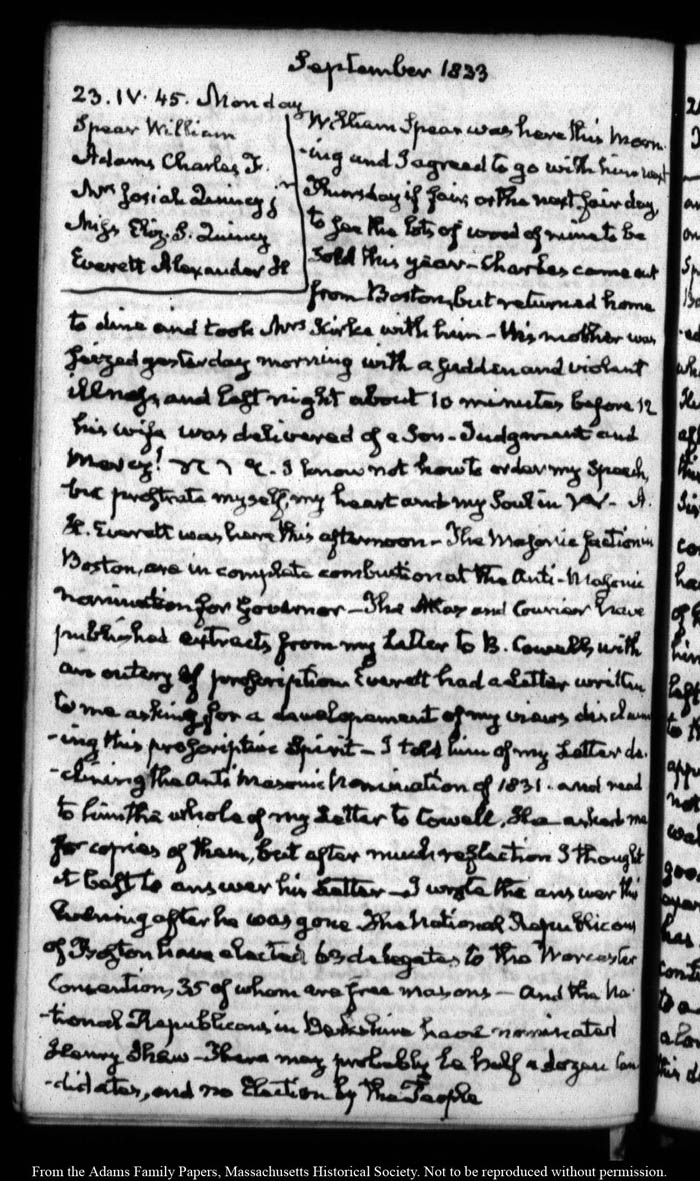 September 1833
23. IV. 45. Monday
Spear William
Adams Charles F.
Mrs Josiah Quincy jr
Miss Eliz. S. Quincy
Everett Alexander H
William Spear was here this morn-
-ing and I agreed to go with him next
Thursday if fair, or the next fair day,
to see the lots of wood of mine to be
sold this year – Charles came out
from Boston, but returned home
to dine and took Mrs Kirke with him – His mother was
seized yesterday morning with a sudden and violent
illness, and last night about 10 minutes before 12
his wife was delivered of a Son – Judgment and
Mercy! I know not how to order my Speech,
but prostrate myself, my heart and my Soul in A.
H. Everett was here this afternoon – The Masonic faction in
Boston, are in complete combustion at the Anti-Masonic
nomination for Governor – The Atlas and Courier have
published extracts from my Letter to B. Cowell, with
an outcry of proscription. Everett had a Letter written
to me asking for a developement of my views disclaim
-ing this proscriptive Spirit – I told him of my Letter de-
-clining the Anti Masonic Nomination of 1831. and read
to him the whole of my Letter to Cowell. He asked me
for copies of them, but after much reflection I thought
it best to answer his Letter – I wrote the answer this
Evening after he was gone. The National Republicans
of Boston have elected 63 delegates to the Worcester
Convention, 35 of whom are free masons – and the Na-
-tional Republicans in Berkshire have nominated
Henry Shaw – There may probably be half a dozen Can
-didates, and no Election by the People
From the Adams Family Papers, Massachusetts Historical Society. Not to be reproduced without permission.